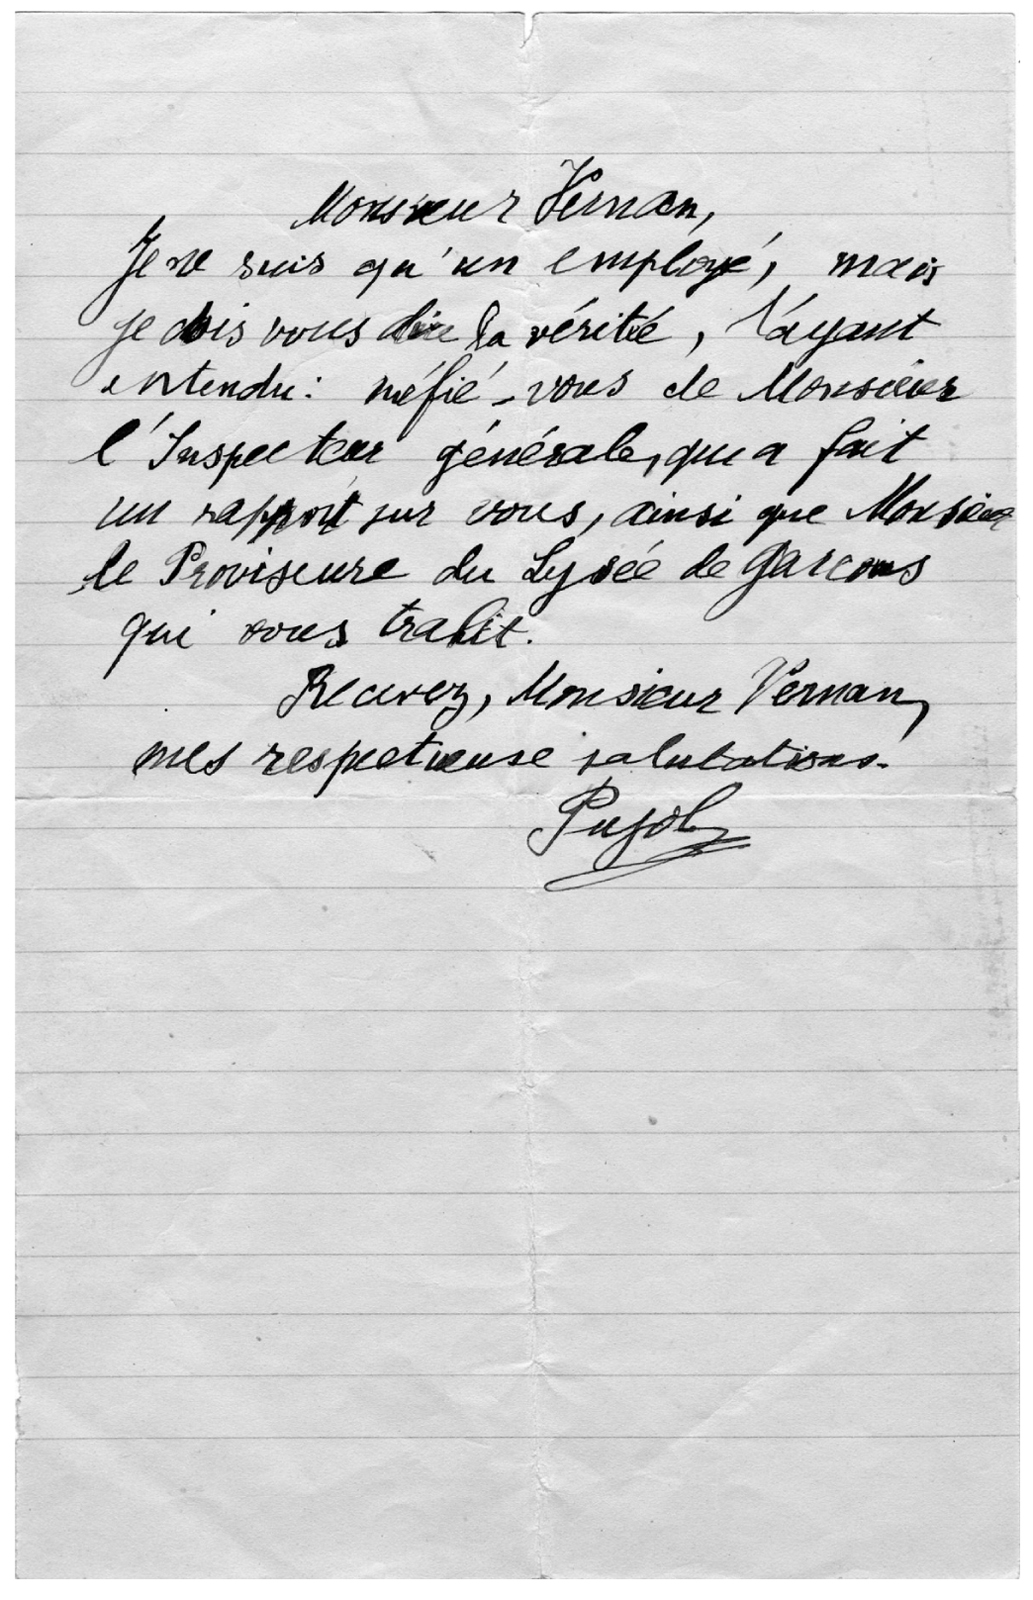 Monsieur Vernan,
Je ne suis qu'un employé, mais
je dois vous dire la vérité, l'ayant
entendu: méfié-vous de Monsieur
l'Inspecteur générale, qui a fait
un rapport sur vous, ainsi que Monsieur
le Proviseure du Lysée de Garcons
qui vous trahit.
Recevez, Monsieur Vernan,
mes respectueuse salutations.
Pujol